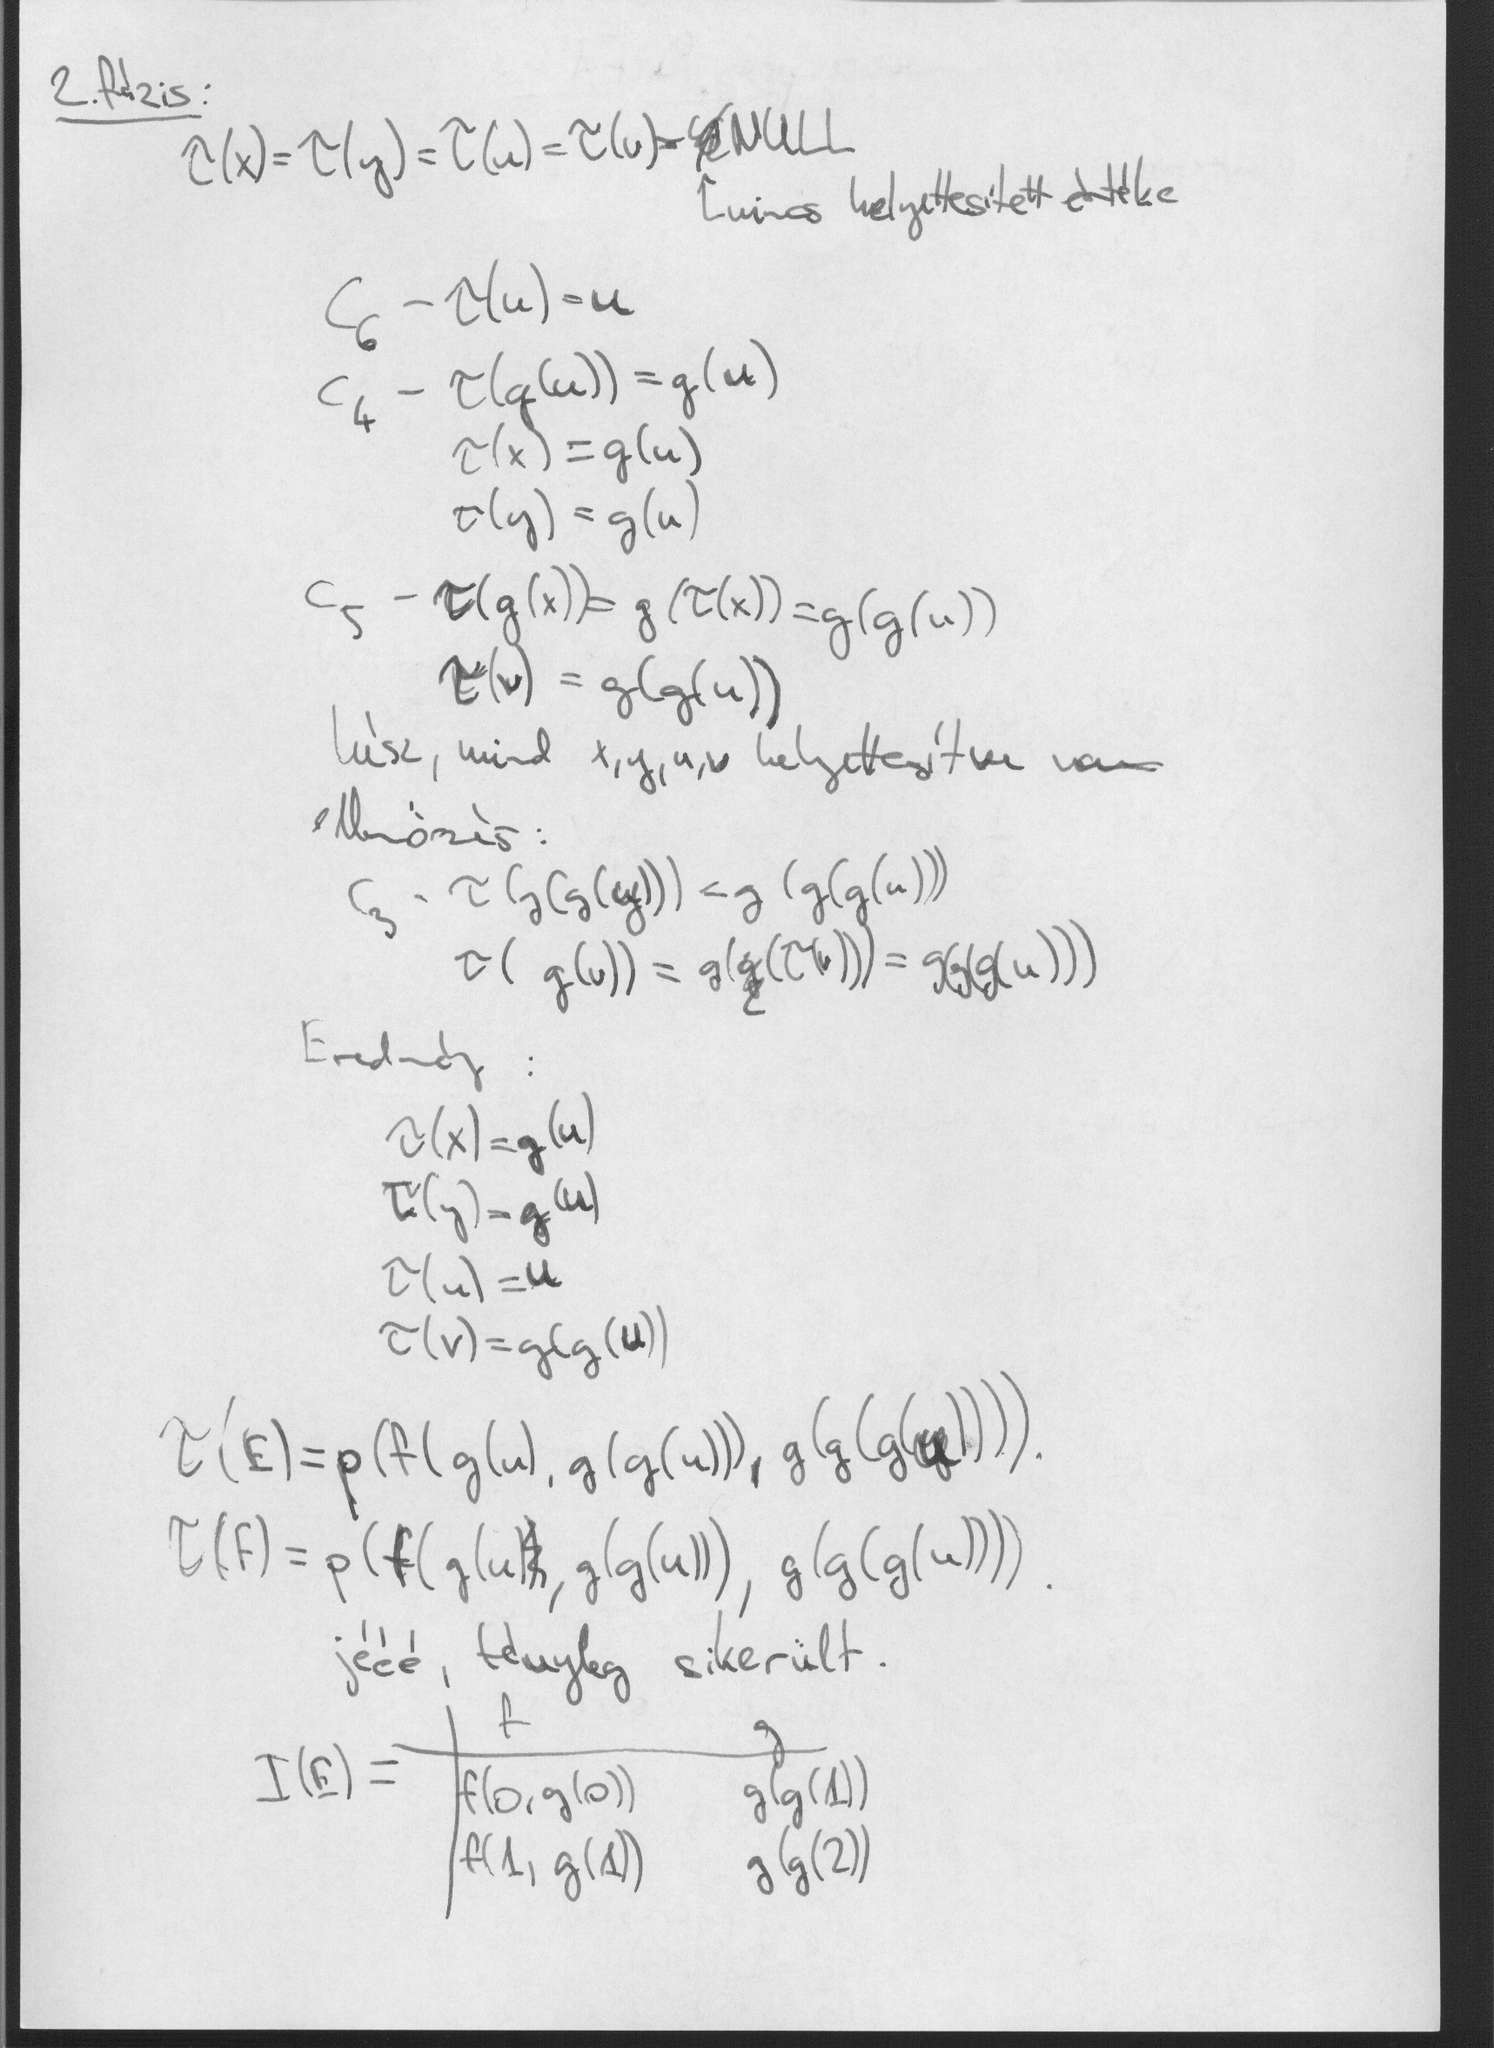 2. fázis:
τ(x) = τ(y) = τ(u) = τ(v) = NULL
nincs helyettesített értéke
C6 - τ(u) = u
C4 - τ(g(u)) = g(u)
τ(x) = g(u)
τ(y) = g(u)
C5 - τ(g(x)) = g(τ(x)) = g(g(u))
τ(v) = g(g(u))
kész, mind x,y,u,v helyettesítve van
ellenőrzés:
C3 - τ(g(g(y))) = g(g(g(u)))
τ( g(v)) = g(g(τ(v))) = g(g(g(u)))
Eredmény :
τ(x) = g(u)
τ(y) = g(u)
τ(u) = u
τ(v) = g(g(u))
τ(E) = p(f(g(u), g(g(u))), g(g(g(u)))).
τ(F) = p(f(g(u), g(g(u))), g(g(g(u)))).
jééé, tényleg sikerült.
f g
I(E) =
f(0, g(0)) g(g(1))
f(1, g(1)) g(g(2))